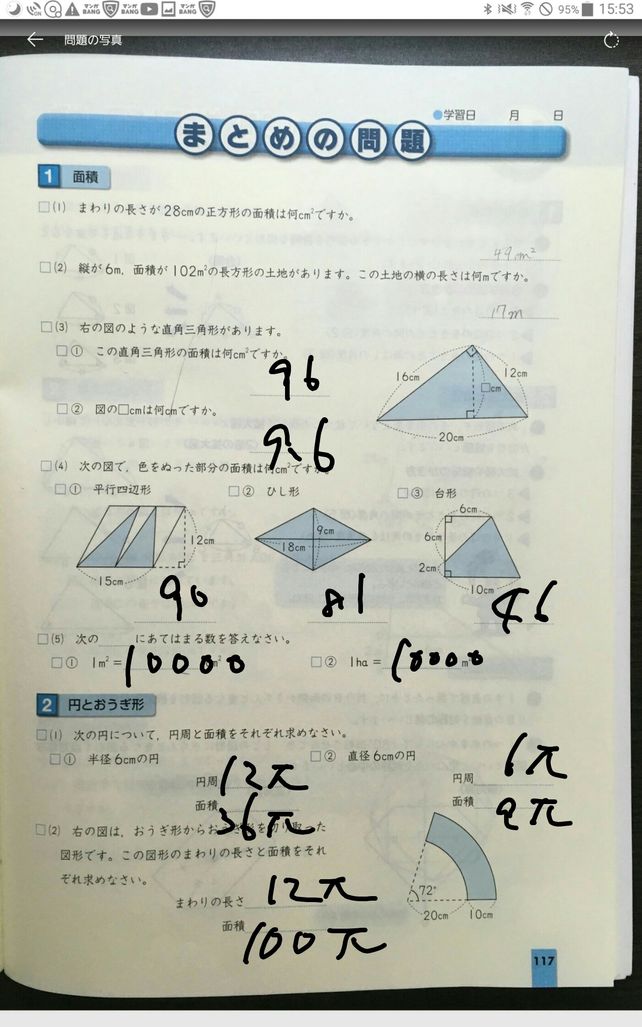 95% 15:53
問題の写真
●学習日 月 日
まとめの問題
1 面積
□(1) まわりの長さが28cmの正方形の面積は何cm²ですか。
49cm²
□(2) 縦が6m,面積が102m²の長方形の土地があります。この土地の横の長さは何mですか。
17m
□(3) 右の図のような直角三角形があります。
□① この直角三角形の面積は何cm²ですか。
96
16cm 12cm
□cm
20cm
□② 図の□cmは何cmですか。
9.6
□(4) 次の図で,色をぬった部分の面積は何cm²ですか。
□① 平行四辺形 □② ひし形 □③ 台形
12cm
15cm
9cm
18cm
6cm
6cm
2cm
10cm
90 81 46
□(5) 次の にあてはまる数を答えなさい。
□① 1m²= 10000 □② 1ha= 10000 m²
2 円とおうぎ形
□(1) 次の円について,円周と面積をそれぞれ求めなさい。
□① 半径6cmの円 □② 直径6cmの円
円周 12π 円周 6π
面積 36π 面積 9π
□(2) 右の図は,おうぎ形からおうぎ形を切り取った
図形です。この図形のまわりの長さと面積をそれ
ぞれ求めなさい。
72°
20cm 10cm
まわりの長さ 12π
面積 100π
117